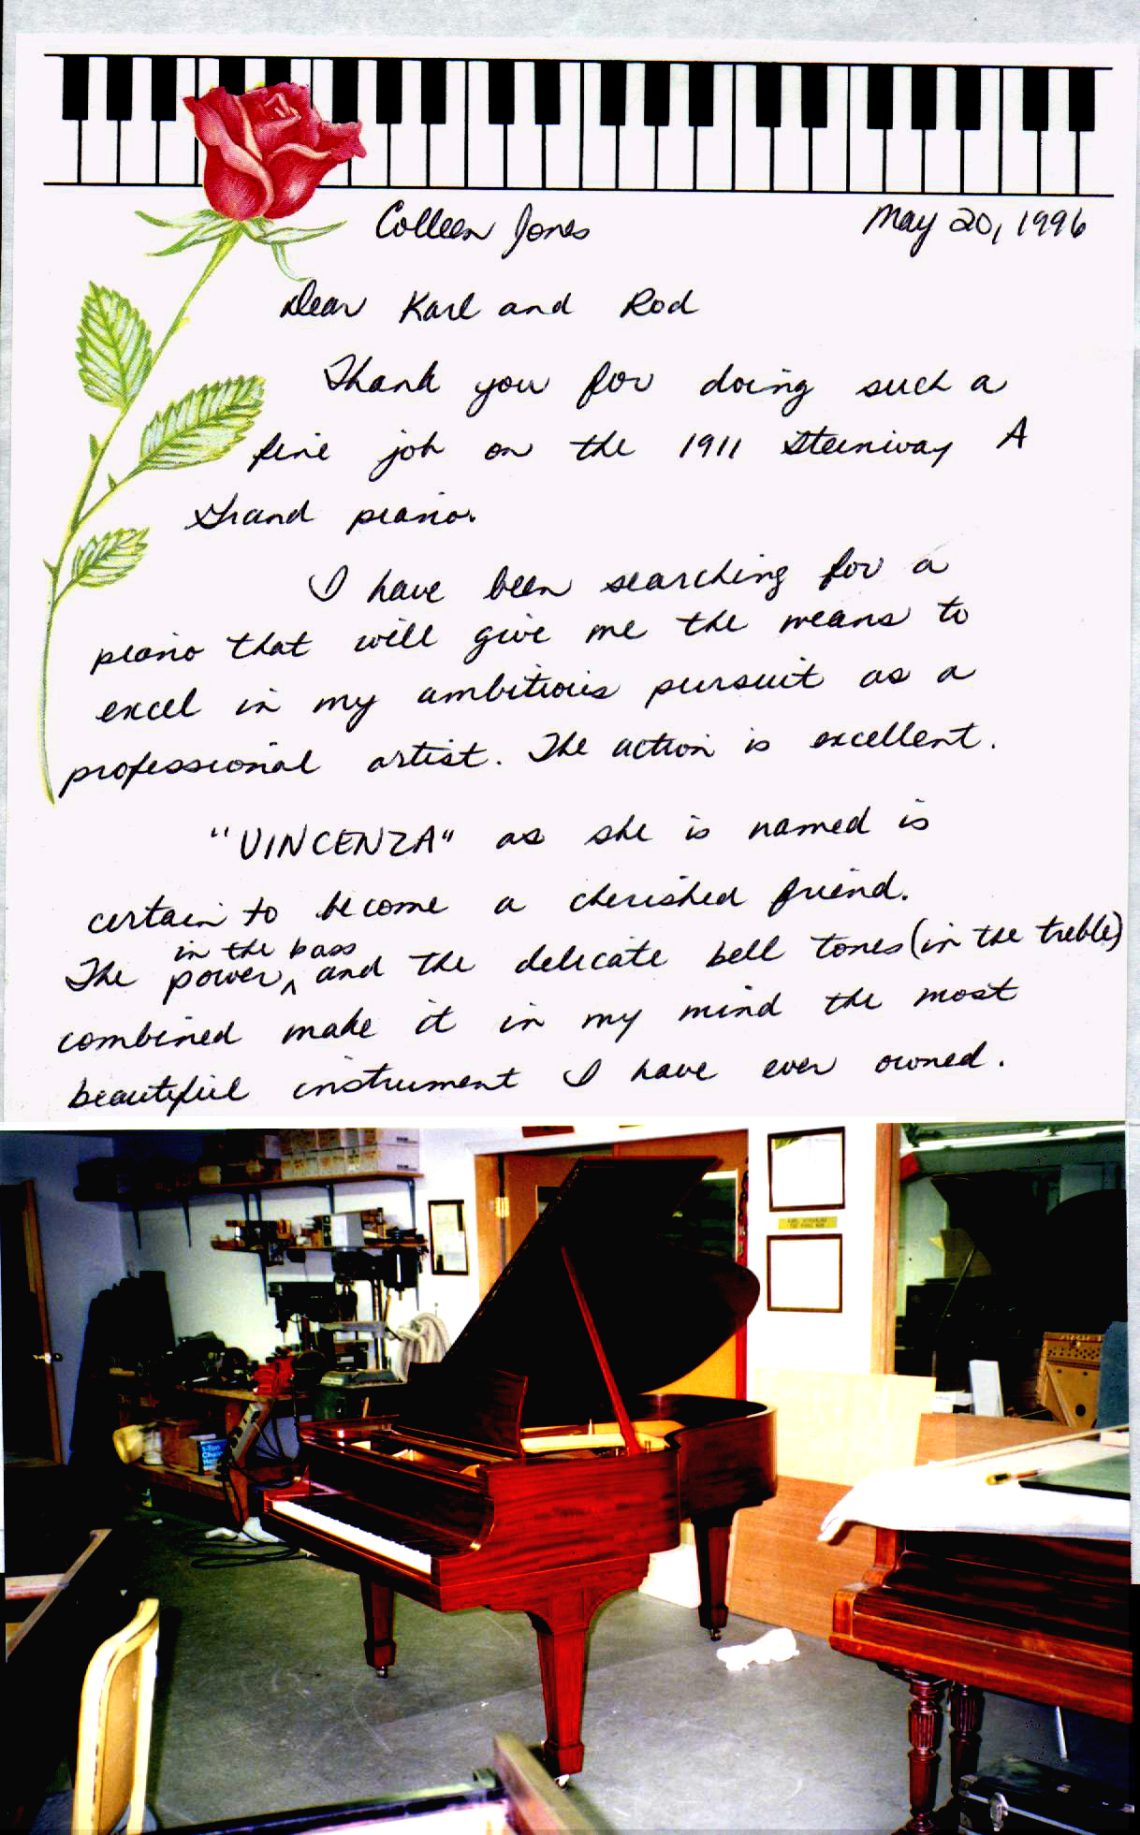 Colleen Jones May 20, 1996
Dear Karl and Rod
Thank you for doing such a
fine job on the 1911 Steinway A
Grand piano.
I have been searching for a
piano that will give me the means to
excel in my ambitious pursuit as a
professional artist. The action is excellent.
"VINCENZA" as she is named is
certain to become a cherished friend.
in the bass
The power, ^ and the delicate bell tones (in the treble)
combined make it in my mind the most
beautiful instrument I have ever owned.